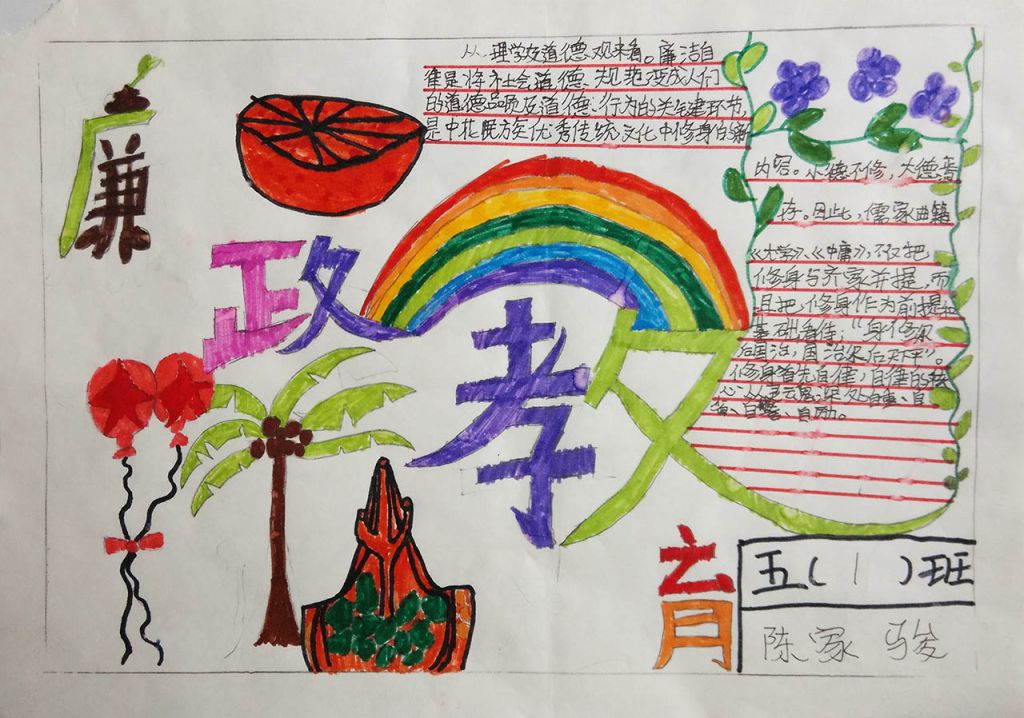 廉
政
教
育
从理学及道德观来看。廉洁自
律是将社会道德、规范变成人们
的道德品质及道德、行为的关键环节,
是中华民族优秀传统文化中修身的
内容。小德不修,大德
存。因此,儒家典籍
《大学》、《中庸》,不仅把
修身与齐家并提,而
且把,修身作为前提和
基础看待;“身修
后国治,国治 后天下平”。
修身首先自律,自律的核
心 自
省、自警、自励。
五(1)班
陈家骏